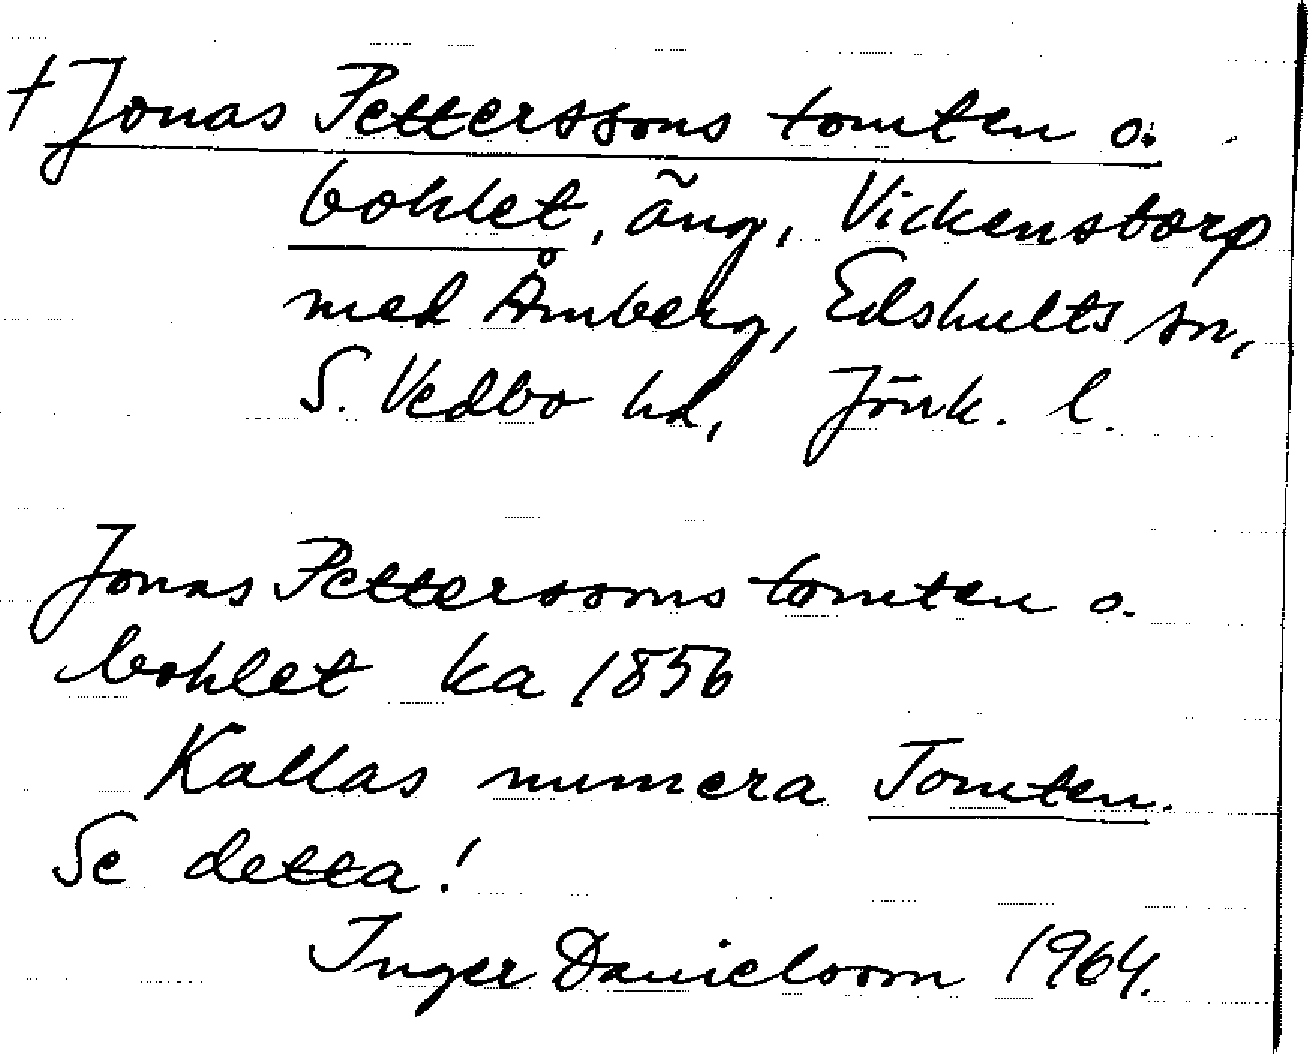 † Jonas Petterssons tomten o.
bohlet, äng, Vickenstorp
med Åmberg, Edshults sn,
S. Vedbo hd, Jönk. l.
Jonas Petterssons tomten o.
bohlet ka 1856
Kallas numera Tomten.
Se detta!
Inger Danielsson 1964.